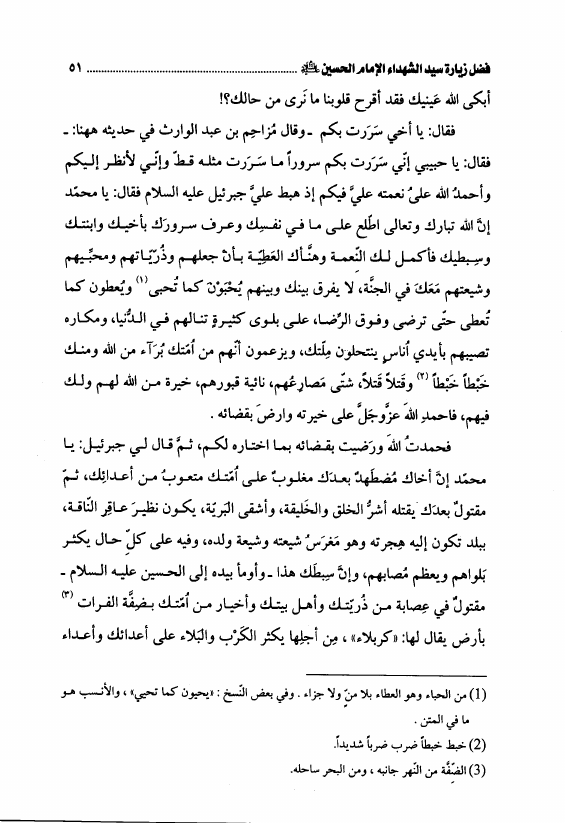 فضل زيارة سيد الشهداء الإمام الحسين ................................................ ٥١
أبكى الله عَينيك فقد أقرح قلوبنا ما نَرى من حالك؟!
فقال: يا أخي سَرَرت بكم ـ وقال مُزاحِم بن عبد الوارث في حديثه ههنا: ـ
فقال: يا حبيبي إنّي سَرَرت بكم سروراً ما سَرَرت مثله قطّ وإنّي لأنظر إليكم
وأحمدُ الله علىُ نعمته عليَّ فيكم إذ هبط عليَّ جبرئيل عليه السلام فقال: يا محمّد
إنَّ الله تبارك وتعالى اطّلع على ما في نفسِك وعرف سرورَك بأخيك وابنتك
وسِبطيك فأكمل لك النّعمة وهنَّأك العَطيّة بأنْ جعلهم وذُرّيّاتهم ومحبِّيهم
وشيعتهم مَعَكَ في الجنَّة، لا يفرق بينك وبينهم يُحْبَوْنَ كما تُحبى(١) ويُعطون كما
تُعطى حتّى ترضى وفوق الرِّضا، على بلوى كثيرةٍ تنالهم في الدُّنيا، ومكاره
تصيبهم بأيدي اُناسٍ ينتحلون مِلّتك، ويزعمون أنّهم من اُمّتك بُرَآء من الله ومنك
خَبْطاً خَبْطاً(٢) وقَتلاً قَتلاً، شتّى مَصارِعُهم، نائية قبورهم، خيرة من الله لهم ولك
فيهم، فاحمدِ اللهَ عزَّوجَلَّ على خيرته وارضَ بقضائه .
فحمدتُ اللهَ ورَضيت بقضائه بما اختاره لكم، ثمَّ قال لي جبرئيل: يا
محمّد إنَّ أخاك مُضطَهدٌ بعدَك مغلوبٌ على اُمّتك متعوبٌ من أعدائِك، ثمّ
مقتولٌ بعدَك يقتله أشرُّ الخلق والخَليقة، وأشقى البَريّة، يكون نظيرَ عاقِر النّاقة،
ببلد تكون إليه هِجرته وهو مَغرَسُ شيعته وشيعة ولده، وفيه على كلِّ حال يكثر
بَلواهم ويعظم مُصابهم، وإنَّ سِبطَك هذا ـ وأومأ بيده إلى الحسين عليه السلام ـ
مقتولٌ في عِصابة من ذُريّتك وأهل بيتك وأخيار من اُمّتك بضفَّة الفرات(٣)
بأرض يقال لها: «كربلاء» ، مِن أجلِها يكثر الكَرْب والبَلاء على أعدائك وأعداء
(1) من الحباء وهو العطاء بلا منّ ولا جزاء . وفي بعض النّسخ : «يحيون كما تحيي» ، والأنسب هو
ما في المتن .
(2) خبط خبطاً ضرب ضرباً شديداً.
(3) الضِّفَّة من النّهر جانبه ، ومن البحر ساحله.